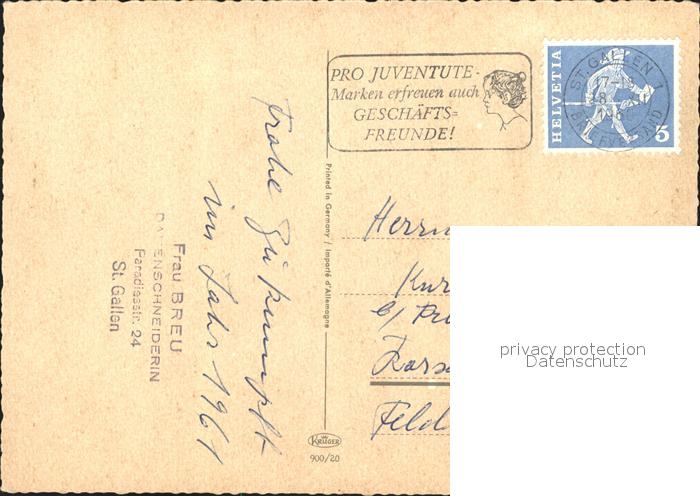 PRO JUVENTUTE-
Marken erfreuen auch
GESCHÄFTS=
FREUNDE!
HELVETIA
5
ST. GALLEN 1
BRIEFVERSAND
Frohe Zukunft
im Jahr 1961
Frau BREU
DAMENSCHNEIDERIN
Paradiesstr. 24
St. Gallen
Printed in Germany / Importé d'Allemagne
KRÜGER
900/20
Herrn
Kur
Feld
privacy protection
Datenschutz